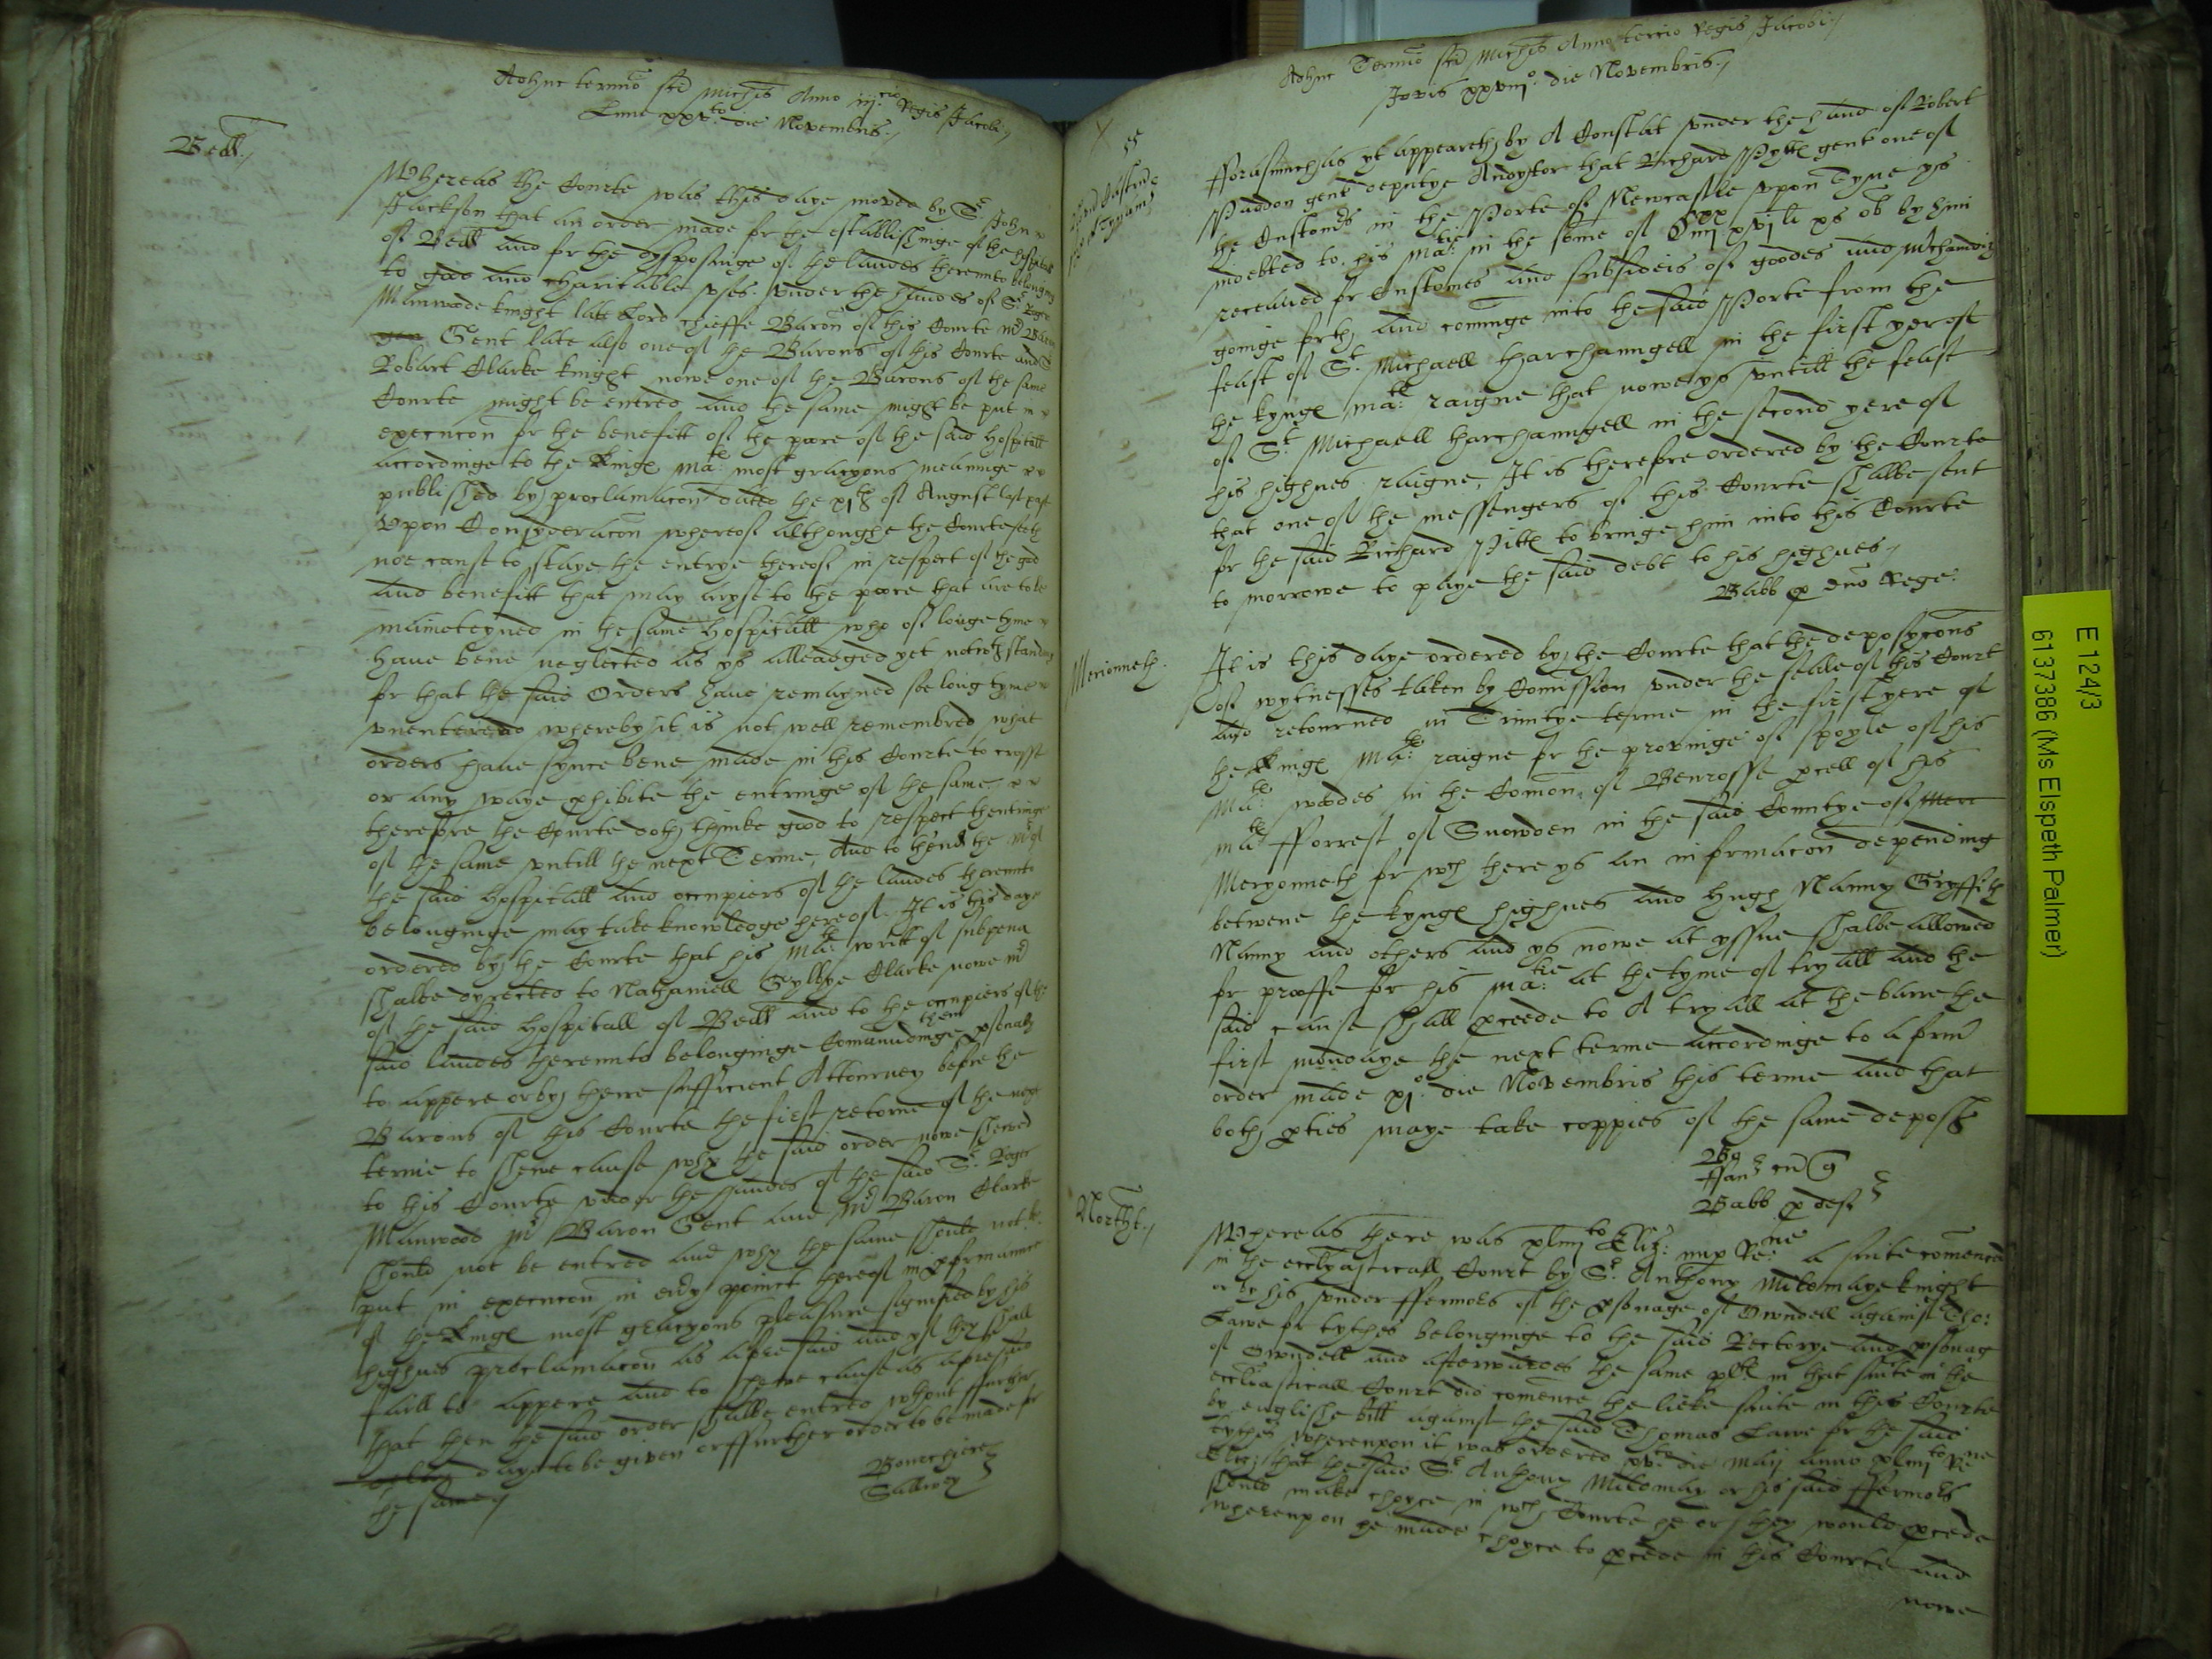 Adhuc termino sci Michis Anno iij.cio Regis Jacobi./
Lune xxv.to die Novembris./
Bedd./
Whereas the Courte was this daye moved by Sr. John
Jackson that an order made for the establishinge of the hospitall
of Bedd and for the dysposinge of the landes thereunto belonging
to god and charitable vses. vnder the handes of Sr. Roger
Manwoode knight late Lord Chieffe Baron of this Courte mr Baron
Gent late also one of the Barons of this Courte and Sr.
Robart Clarke knight nowe one of the Barons of the same
Courte might be entred and the same might be put in
execucon for the benefitt of the poore of the said hospitall
accordinge to the Kinges mats. most gracyous meaninge
published by proclamacon dated the of August last past
Vpon Consyderacon whereof althoughe the Courte seeth
noe cause to staye the entrye thereof in respect of the god
and benefitt that may aryse to the poore that are to be
mainteyned in the same hospitall who of longe tyme
have bene neglected as ys alleadged yet notwthstanding
for that the said Orders have remayned soe long tyme
vnentered whereby it is not well remembred what
orders have synce bene made in this Courte to crosse
or any waye phibite the entringe of the same.
therefore the Courte doth thinke good to respect thentringe
of the same vntill the next Terme, And to thend the mr of
the said hospitall and occupiers of the landes thereunto
belonginge may take knowledge hereof. It is this daye
ordered by the Courte that his mats writt of subpena
shalbe dyrected to Nathaniell Clarke nowe mr
of the said hospitall of Bedd and to the occupiers of the
said landes thereunto belonginge Comaundinge them psonaly
to appere or by there sufficient Attorney before the
Barons of this Courte the first retorne of the next
terme to shewe cause why the said order nowe shewed
to this Courte vnder the handes of the said Sr. Roger
Manwood mr Baron Gent and mr Baron Clarke
should not be entred and why the same should not be
put in execucon in every poinct thereof in pformance
of the Kinges most gracyous pleasure signified by his
highnes proclamacon as aforesaid and yf they shall
faill to appere and to shewe cause as aforesaid
that then the said order shalbe entred wthout further
daye to be given or further order to be made for
the same./
Bourchiere
Sallwey
Adhuc Termino sci Michis Anno tercio Regis Jacobi./
Jovis xxviij.o die Novembris./
55
fforasmuch as yt appeareth by A Constat vnder the hand of Robert
Paddon gent deputye Audytor that Richard Pytts gent one of
the Customrs in the Porte of Newcastle vpon Tyne ys
indebted to his matie in the some of xvj li xs ob by him
receaved for Customes and subsideis of goodes and mchandiz
goinge forth and cominge into the said Porte from the
feast of St. Michaell tharchanngell in the first yere of
the kynges mats. raigne that nowe ys vntill the feast
of St. Michaell tharchanngell in the second yere of
his highnes raigne, It is therefore ordered by the Courte
that one of the messengers of this Courte shalbe sent
for the said Richard Pitts to bringe him into this Courte
to morrowe to paye the said debt to his highnes./
Babb p dno Rege.
Merionneth.
It is this daye ordered by the Courte that the deposycons
of wytnesses taken by Comission vnder the seale of this Court
and retourned in Trinitye terme in the first yere of
the Kinges mats. raigne for the provinge of spoyle of his
mats. woodes in the Comon of Benrosse pcell of his
mats fforrest of Snowden in the said Countye of Mer
Meryonneth for wch there ys an informacon depending
betwene the kynges highnes and Hugh Nanny Gryffith
Nanny and others and ys nowe at yssue shalbe allowed
for prooffe for his matie. at the tyme of tryall and the
said cause shall pceede to A tryall at the barre the
first mondaye the next terme accordinge to a form
order made xj.o die Novembris this terme and that
both pties maye take coppies of the same depos
Babb p def
Northt./
Whereas there was xlmj.to Eliz: nup Re:ne a suite comenced
in the ecclyasticall Court by Sr. Anthony Mildmaye knight
or by his vnder ffermors of the psonage of Owndell against Tho:
Lawe for tythes belonginge to the said Rectorye and psonag
of Owndell and afterwardes the same plt in that suite in the
eccliasticall Court did comence the lieke suite in this Courte
by englishe bill against the said Thomas Lawe for the said
tythes whereupon it was ordered xvto die Maij anno xlmj.to Re:ne
Eliz: that the said Sr. Anthony Mildmay or his said ffermors
should make choyce in wch Courte he or they would pcede
whereupon he made choyce to pcede in this Courte and
nowe
E 124/3
6137386 (Ms Elspeth Palmer)